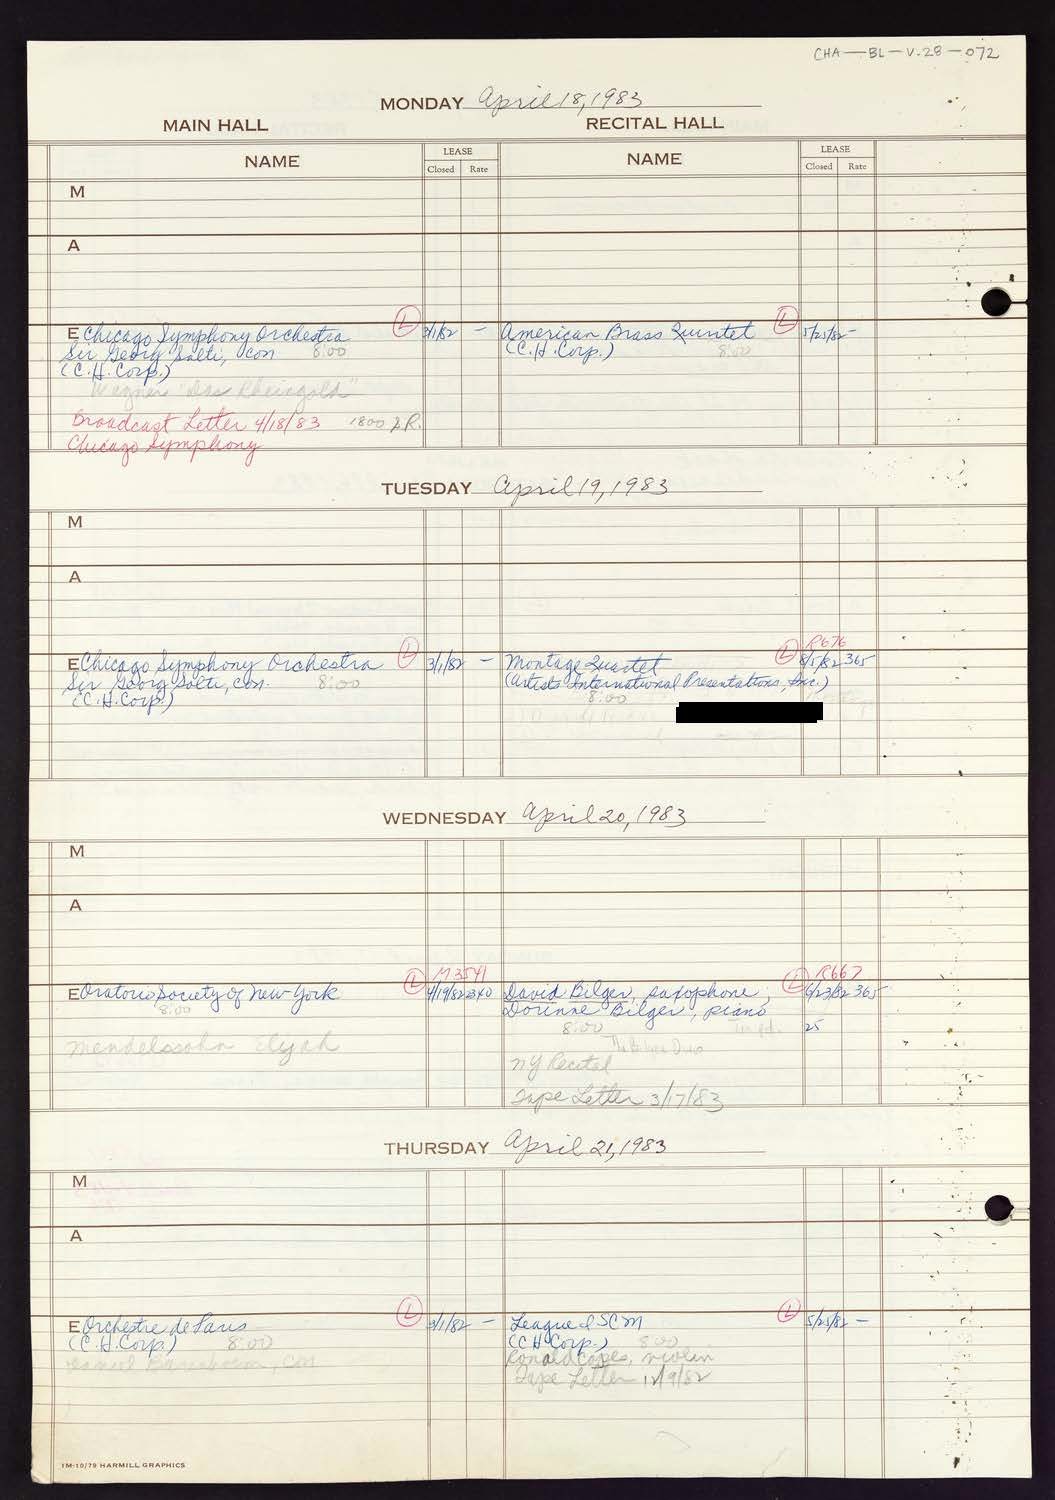 CHA—BL—V.28—072
MONDAY April 18, 1983
MAIN HALL
RECITAL HALL
NAME
LEASE
Closed Rate
NAME
LEASE
Closed Rate
M
A
E Chicago Symphony Orchestra
Sir Georg Solti, con 8:00
(C.H. Corp.)
Wagner "Das Rheingold"
Broadcast Letter 4/18/83 1800
Chicago Symphony
L
3/1/82 —
American Brass Quintet
(C.H. Corp.) 8:00
L
5/25/82 —
TUESDAY April 19, 1983
M
A
E Chicago Symphony Orchestra
Sir Georg Solti, con. 8:00
(C.H. Corp.)
L
3/1/82 —
Montage Quartet
(Artists International Presentations, Inc.)
8:00
L
R676
8/5/82 365
WEDNESDAY April 20, 1983
M
A
E Oratorio Society of New York
8:00
Mendelssohn Elijah
L
M3541
4/19/82 2340
David Bilger, saxophone,
Dorinne Bilger, piano
8:00
The Bilger Duo
NY Recital
Tape Letter 3/17/83
L
R667
6/23/82 365
25
THURSDAY April 21, 1983
M
A
E Orchestre de Paris
(C.H. Corp.) 8:00
Daniel Barenboim, con
L
3/1/82 —
League ISCM
(CH Corp.) 8:00
Ronald Copes, violin
Tape Letter 12/9/82
L
5/25/82 —
1M-10/79 HARMILL GRAPHICS